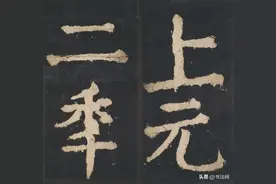 上元
二年
头条 @书法网